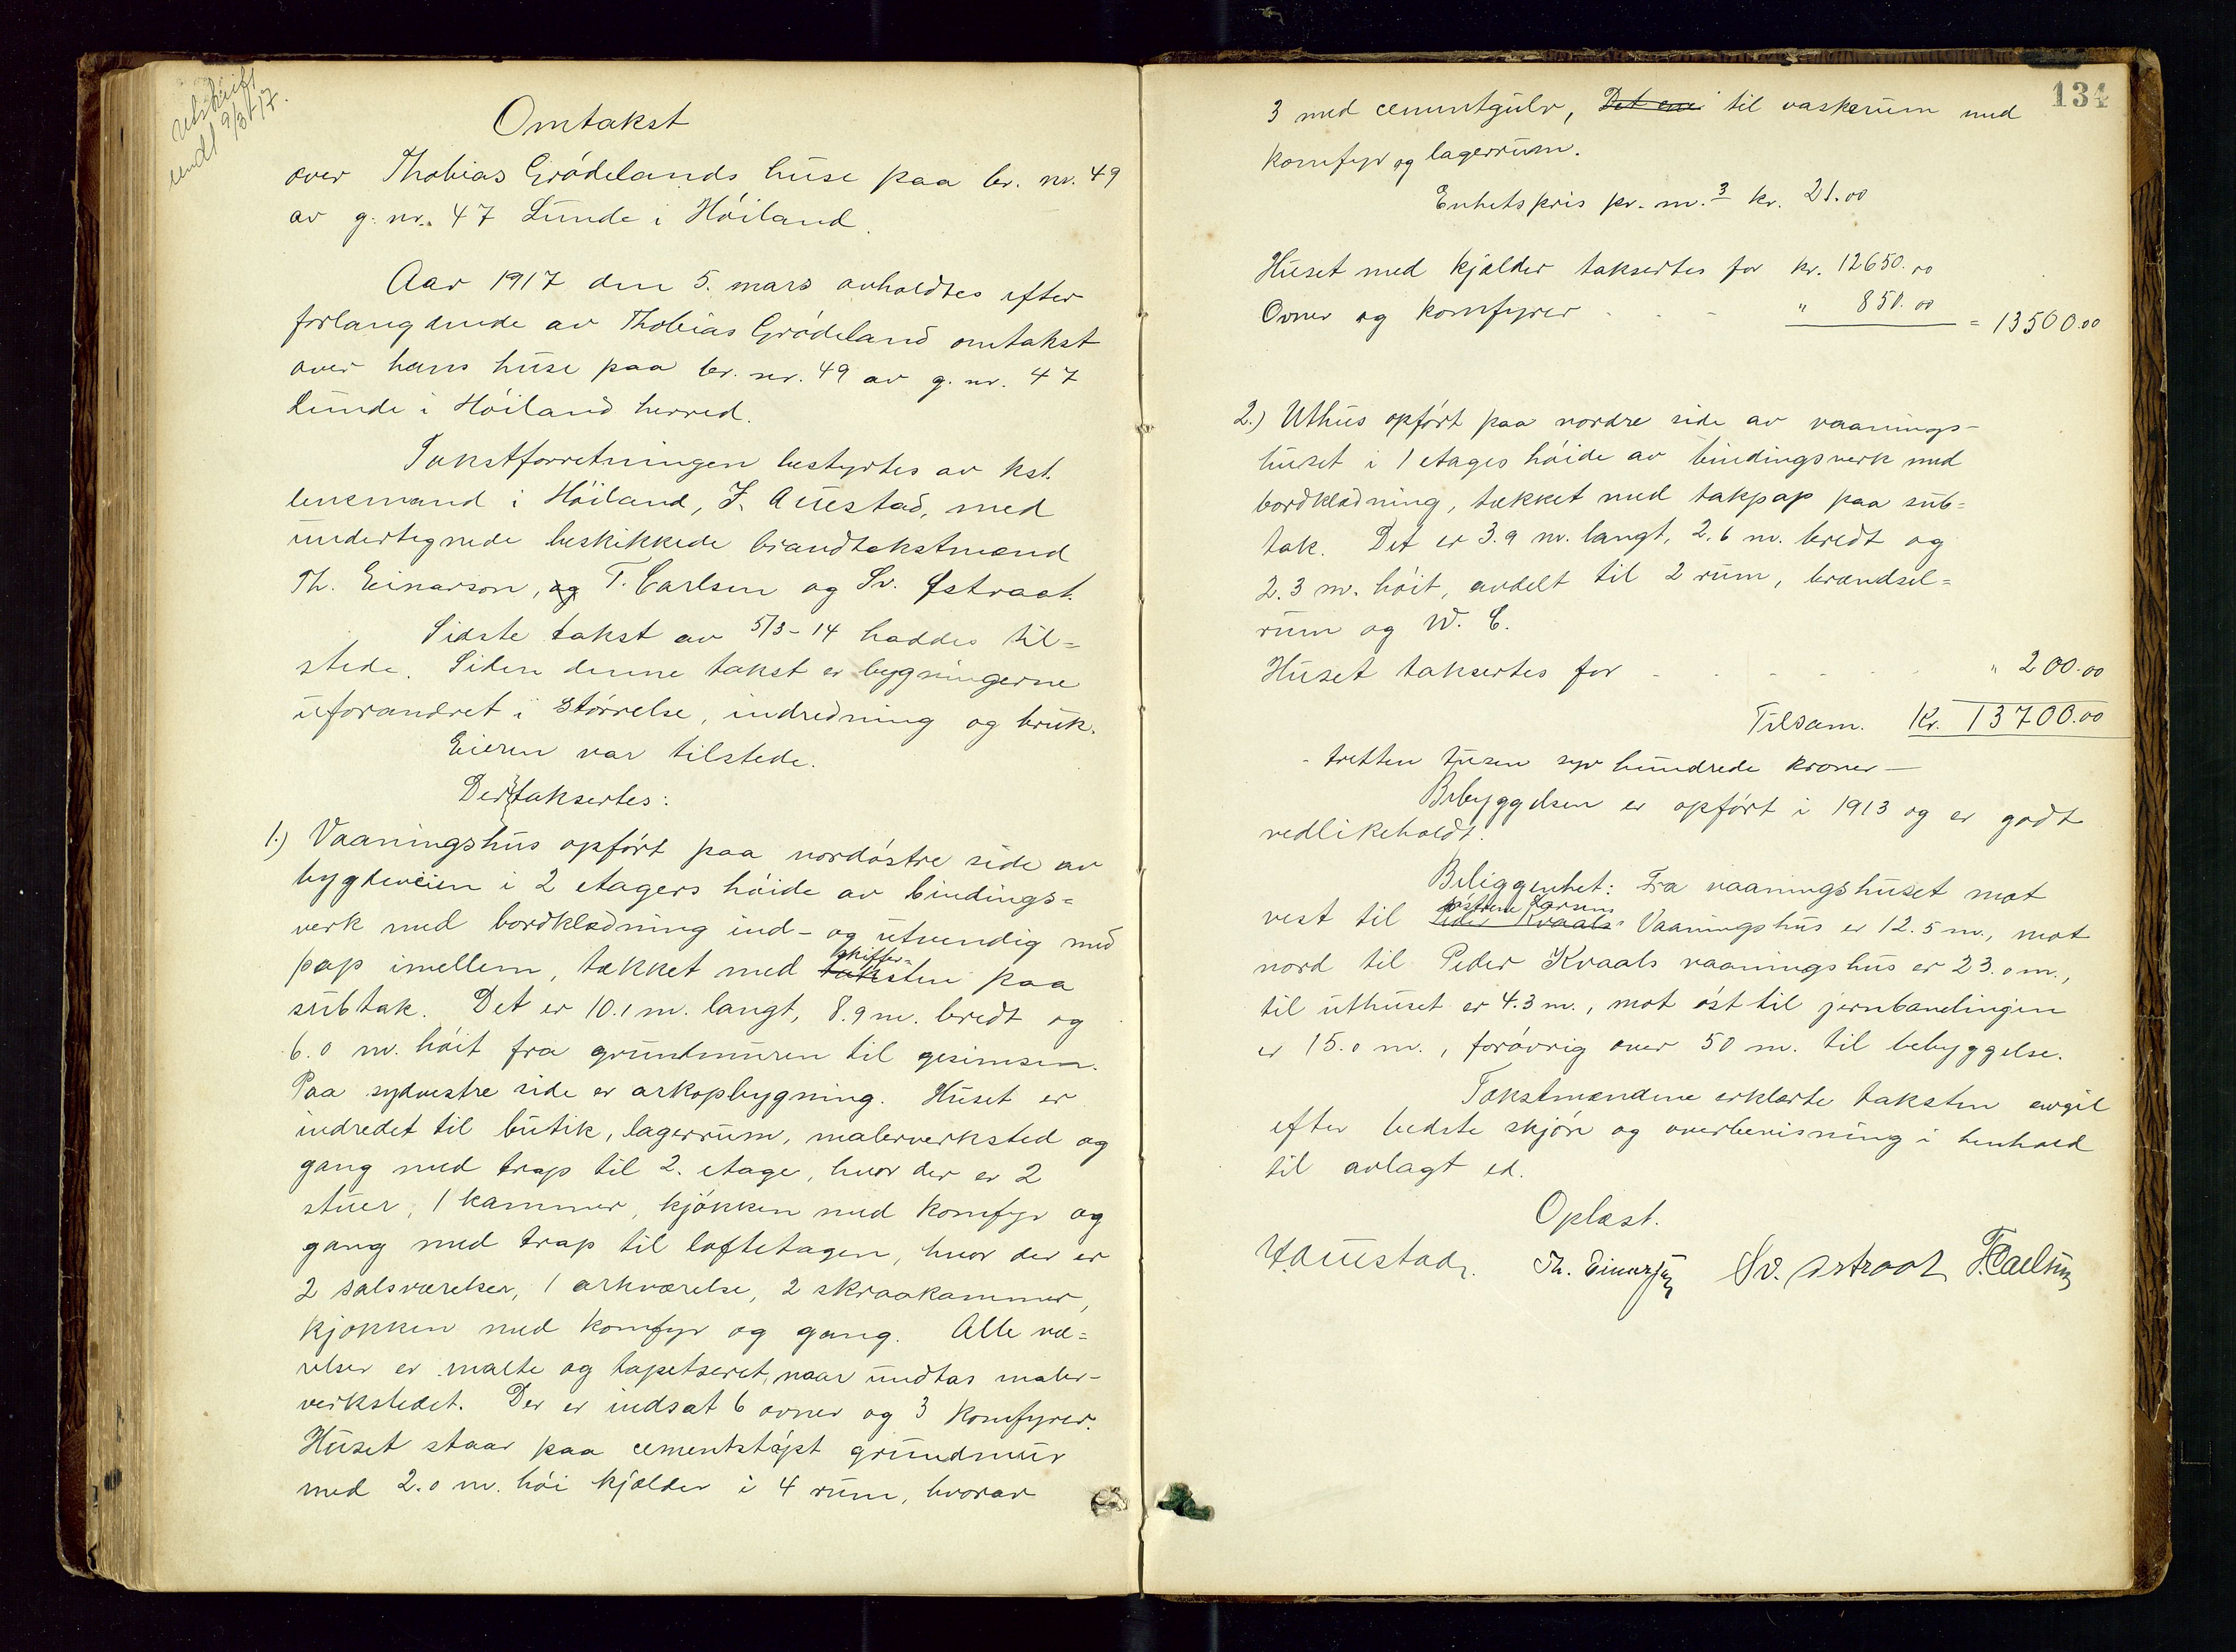 Utskrift
sendt 9/3 17.
Omtakst
over Thobias Grödelands huse paa br. nr. 49
av g. nr. 47 Lunde i Höiland.
Aar 1917 den 5. mars avholdtes efter
forlangdende av Thobias Grödeland omtakst
over hans huse paa br. nr. 49 av g. nr. 47
Lunde i Höiland herred.
Takstforretningen bestyrtes av kst.
lensmand i Höiland, J. Auestad, med
undertegnede beskikkede brandtakstmænd
Th. Einarson, og T. Carlsen og Sv. Østraat.
Sidste takst av 5/3-14 haddes til=
stede. Siden denne takst er bygningerne
uforandret i størrelse, indredning og bruk.
Eieren var tilstede.
Der taksertes:
1.) Vaaningshus opfört paa nordöstre side av
bygdeveien i 2 etagers höide av bindings=
verk med bordklædning ind- og utvendig med
skiffer=
pap imellem, tækket med taksten paa
subtak. Det er 10.1 m. langt, 8.9 m. bredt og
6.0 m. höit fra grundmuren til gesimsen.
Paa sydvestre side er arkopbygning. Huset er
indredet til butik, lagerrum, malerverksted og
gang med trap til 2. etage, hvor der er 2
stuer, 1 kammer, kjökken med komfyr og
gang med trap til loftetagen, hvor der er
2 salsværelser, 1 arkværelse, 2 skraakammer,
kjökken med komfyr og gang. Alle væ=
relser er malte og tapetseret, naar undtas maler-
verkstedet. Der er indsat 6 ovner og 3 komfyrer.
Huset staar paa cementstöpt grundmur
med 2.0 m. höi kjælder i 4 rum, hvorav
134
3 med cementgulv, Det ene til vaskerum med
komfyr og lagerrum.
Enhetspris pr. m.3 kr. 21.00
Huset med kjælder taksertes for kr. 12650.00
Ovner og komfyrer . . . " 850.00 = 13500.00
2.) Uthus opfört paa nordre side av vaanings-
huset i 1 etages höide av bindingsverk med
bordklædning, tækket med takpap paa sub=
tak. Det er 3.9 m. langt, 2.6 m. bredt og
2.3 m. höit, avdelt til 2 rum, brændsel=
rum og W. C.
Huset taksertes for . . . . . " 200.00
Tilsam. Kr. 13700.00
- tretten tusen syv hundrede kroner —
Bebyggelsen er opfört i 1913 og er godt
vedlikeholdt.
Beliggenhet: Fra vaaningshuset mot
söstrene Larsens
vest til Peder Kvaals Vaaningshus er 12.5 m., mot
nord til Peder Kvaals vaaningshus er 23.0 m.,
til uthuset er 4.3 m., mot öst til jernbanelinjen
er 15.0 m., forövrig over 50 m. til bebyggelse.
Takstmændene erklærte taksten avgit
efter bedste skjön og overbevisning i henhold
til avlagt ed.
Oplæst.
J. Auestad. Th. Einarson Sv. Østraat T. Carlsen